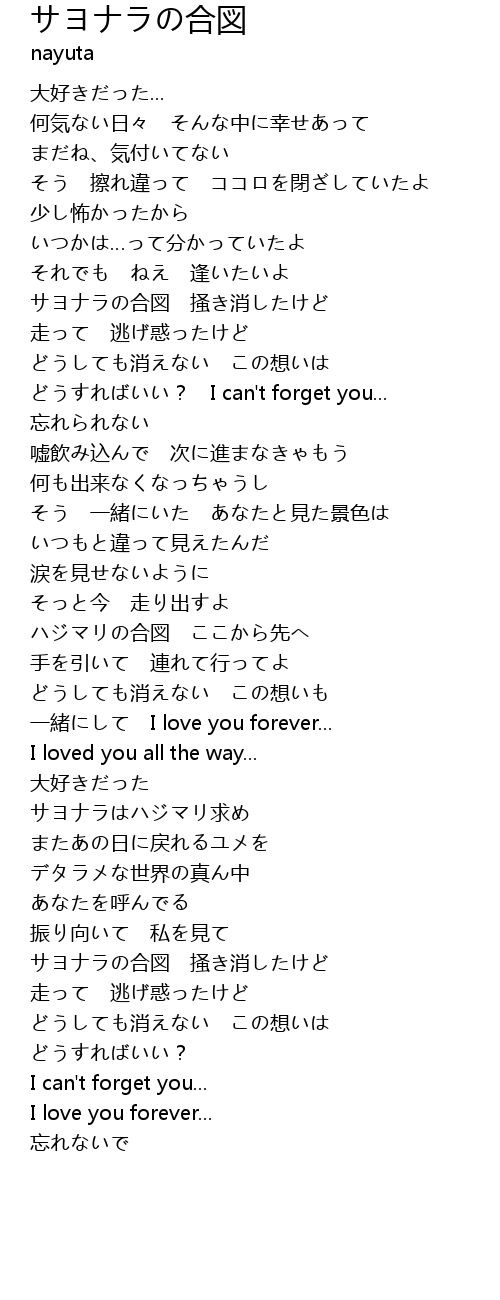 サヨナラの合図
nayuta
大好きだった...
何気ない日々　そんな中に幸せあって
まだね、気付いてない
そう　擦れ違って　ココロを閉ざしていたよ
少し怖かったから
いつかは...って分かっていたよ
それでも　ねえ　逢いたいよ
サヨナラの合図　掻き消したけど
走って　逃げ惑ったけど
どうしても消えない　この想いは
どうすればいい？　I can't forget you...
忘れられない
嘘飲み込んで　次に進まなきゃもう
何も出来なくなっちゃうし
そう　一緒にいた　あなたと見た景色は
いつもと違って見えたんだ
涙を見せないように
そっと今　走り出すよ
ハジマリの合図　ここから先へ
手を引いて　連れて行ってよ
どうしても消えない　この想いも
一緒にして　I love you forever...
I loved you all the way...
大好きだった
サヨナラはハジマリ求め
またあの日に戻れるユメを
デタラメな世界の真ん中
あなたを呼んでる
振り向いて　私を見て
サヨナラの合図　掻き消したけど
走って　逃げ惑ったけど
どうしても消えない　この想いは
どうすればいい？
I can't forget you...
I love you forever...
忘れないで